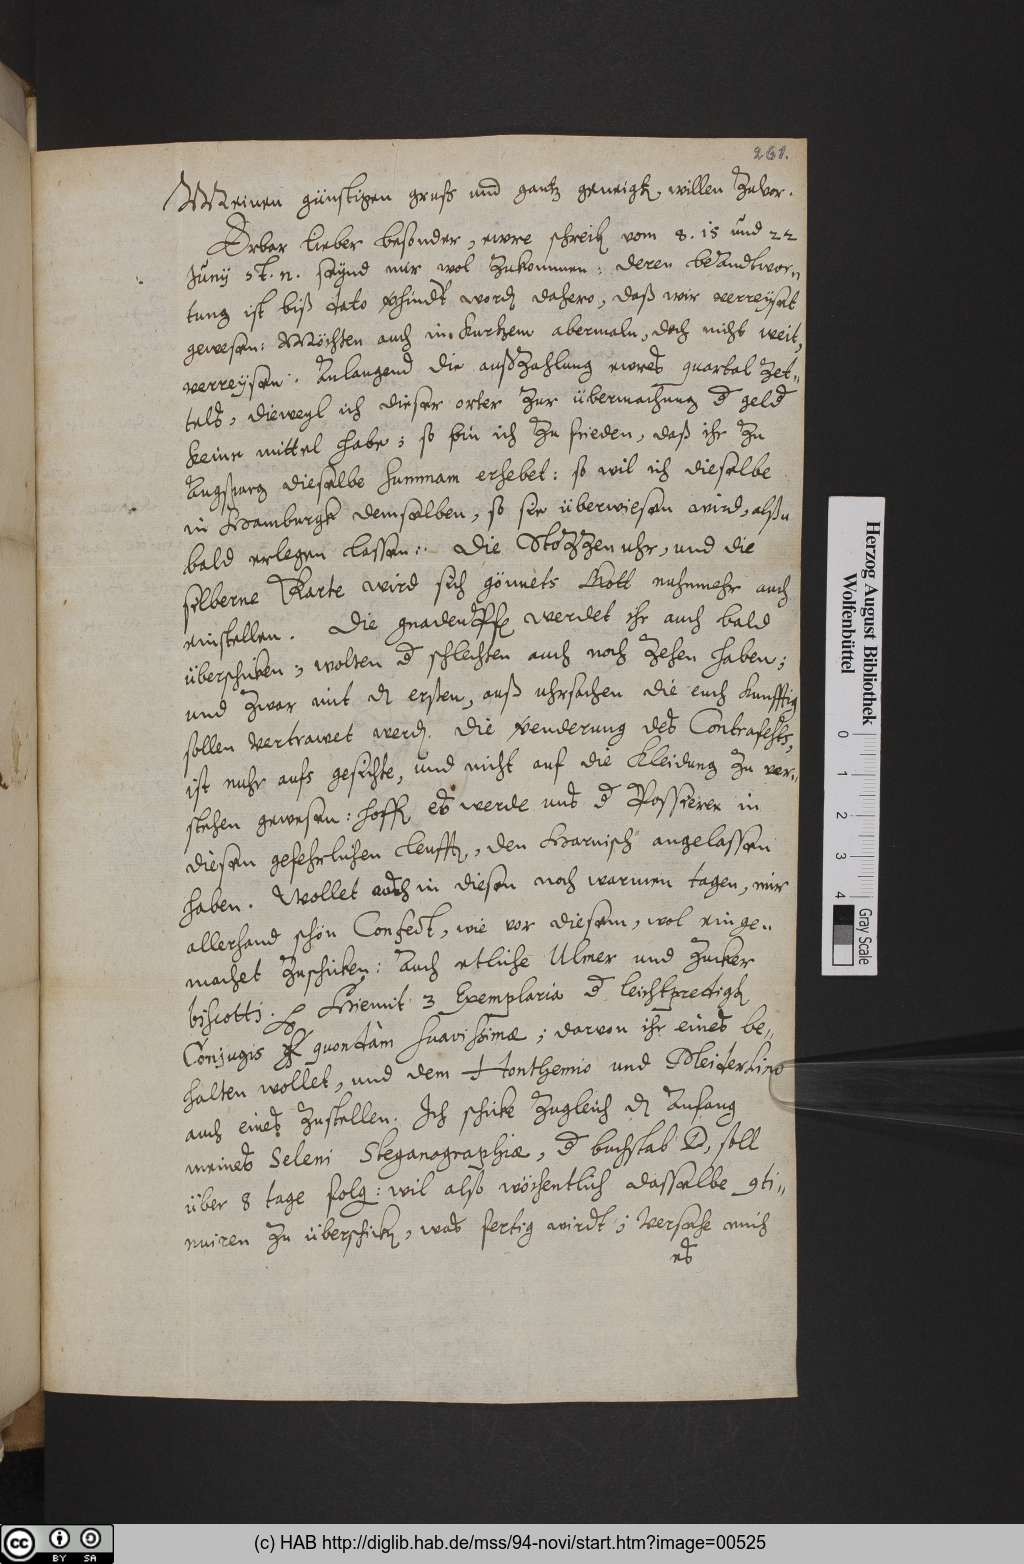 261.
Meinen günstigen gruß und gantz geneigt, willen zuvor.
Erbar lieber besonder, ewre schreib vom 8. 15 und 22
Junÿ st. n. seynd mir wol zukommen: deren beandtwor-
tung ist biß dato vhindt word dahero, daß wir verreÿset
gewesen: Möchten auch in kurtzem abermaln, doch nicht weit,
verreÿsen. Anlangend die außzahlung ewres quartal zet-
tels, dieweyl ich dieser orter zur übermachung d geld
keine mittel habe; so bin ich zu frieden, daß ihr zu
Augspurg dieselbe summam erhebet: so wil ich dieselbe
in Hamburgk demselben, so sie überwiesen wird, alßn
bald erlegen lassen: Die Stozzen uhr, und die
silberne Karte wird sich gönnets Gott nuhnmehr auch
einstellen. Die gnaden werdet ihr auch bald
überschicken; wolten d schlechten auch noch zehen haben;
und zwar mit d ersten, auß uhrsachen die euch kunfftig
sollen vertrawet werd. Die enderung des Contrafehts,
ist nuhr aufs gesichte, und nicht auf die Kleidung zu ver-
stehen gewesen: hoff es werde uns d Possierer in
diesen gefehrlichen leufft, den Harnisch angelassen
haben. Wollet auch in diesen noch warmen tagen, mir
allerhand schön Confect, wie vor diesem, wol einge-
machet zuschicken: Auch etliche Ulmer und Zucker
biscotti. Hiemit 3 Exemplaria d leichtpredigt
Conjugis quondam suavissimæ; darvon ihr eines be-
halten wollet, und dem Honthemio und Meiderlino
auch eines zustellen. Ich schicke zugleich d Anfang
meines Seleni Steganographiæ, d buchstab D, soll
über 8 tage folg: wil also wöchentlich dasselbe 9ti-
nuiren zu überschick, was fertig wirdt; Versehe mich
es
Herzog August Bibliothek
Wolfenbüttel
0 1 2 3 4
Gray Scale
cc BY SA
(c) HAB http://diglib.hab.de/mss/94-novi/start.htm?image=00525